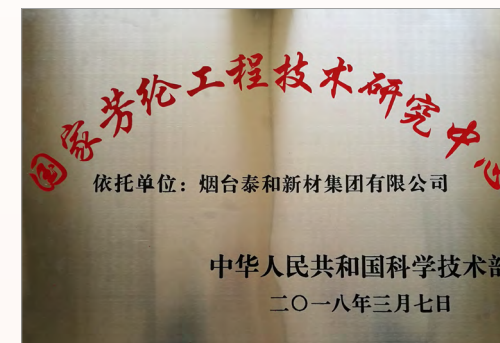 国家芳纶工程技术研究中心
依托单位：烟台泰和新材集团有限公司
中华人民共和国科学技术部
二〇一八年三月七日